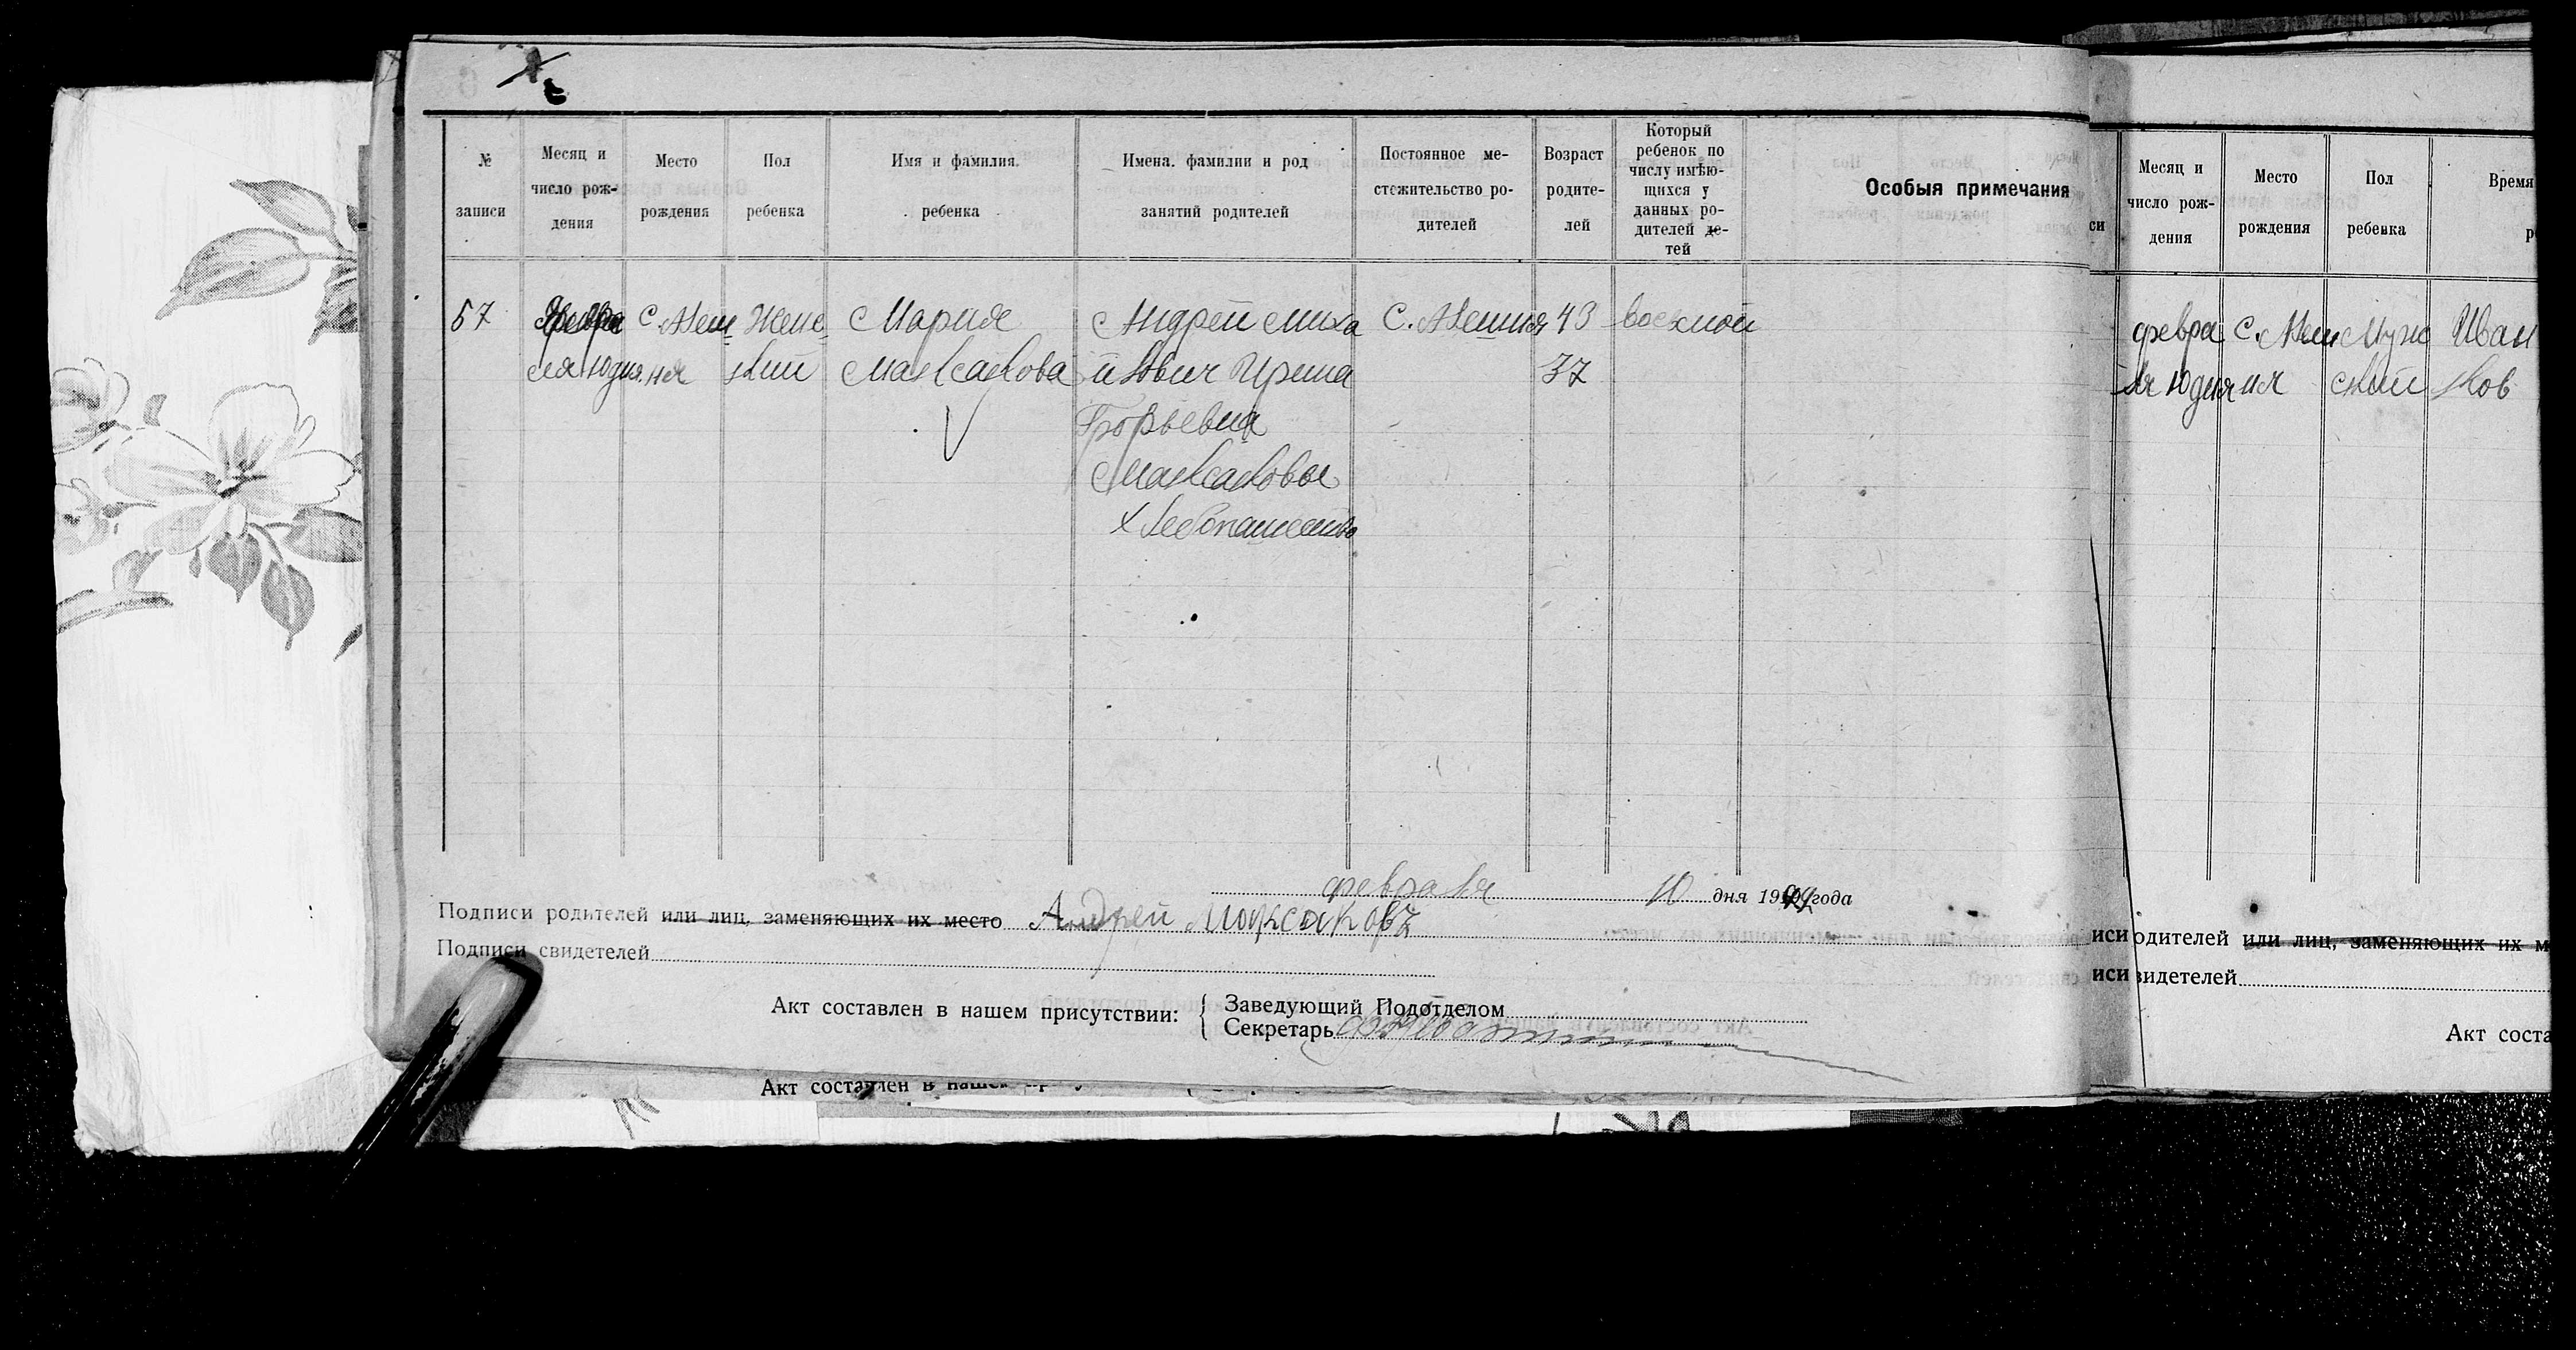 № записи
Месяц и число рождения
Место рождения
Пол ребенка
Имя и фамилия. ребенка
Имена. фамилии и род занятий родителей
Постоянное местожительство родителей
Возраст родителей
Который ребенок по числу имѣющихся у данных родителей детей
Особыя примечания
57
Февра
ля 10 дня
Женс
кий
Мария
Максакова
Андрей Миха
йлович Ирина
Максаковы
Хлебопашество
43
37
февраля 10 дня 19 года
Подписи родителей или лиц, заменяющих их место Андрей Максаковъ
Подписи свидетелей
Акт составлен в нашем присутствии:
Заведующий Подотделом
Секретарь
Акт составлен в нашем
си
Месяц и число рождения
Место рождения
Пол ребенка
Время
февра
ля 10 дня
Муж
ский
Иван
ков
иси одителей или лиц, заменяющих их м
иси видетелей
Акт соста